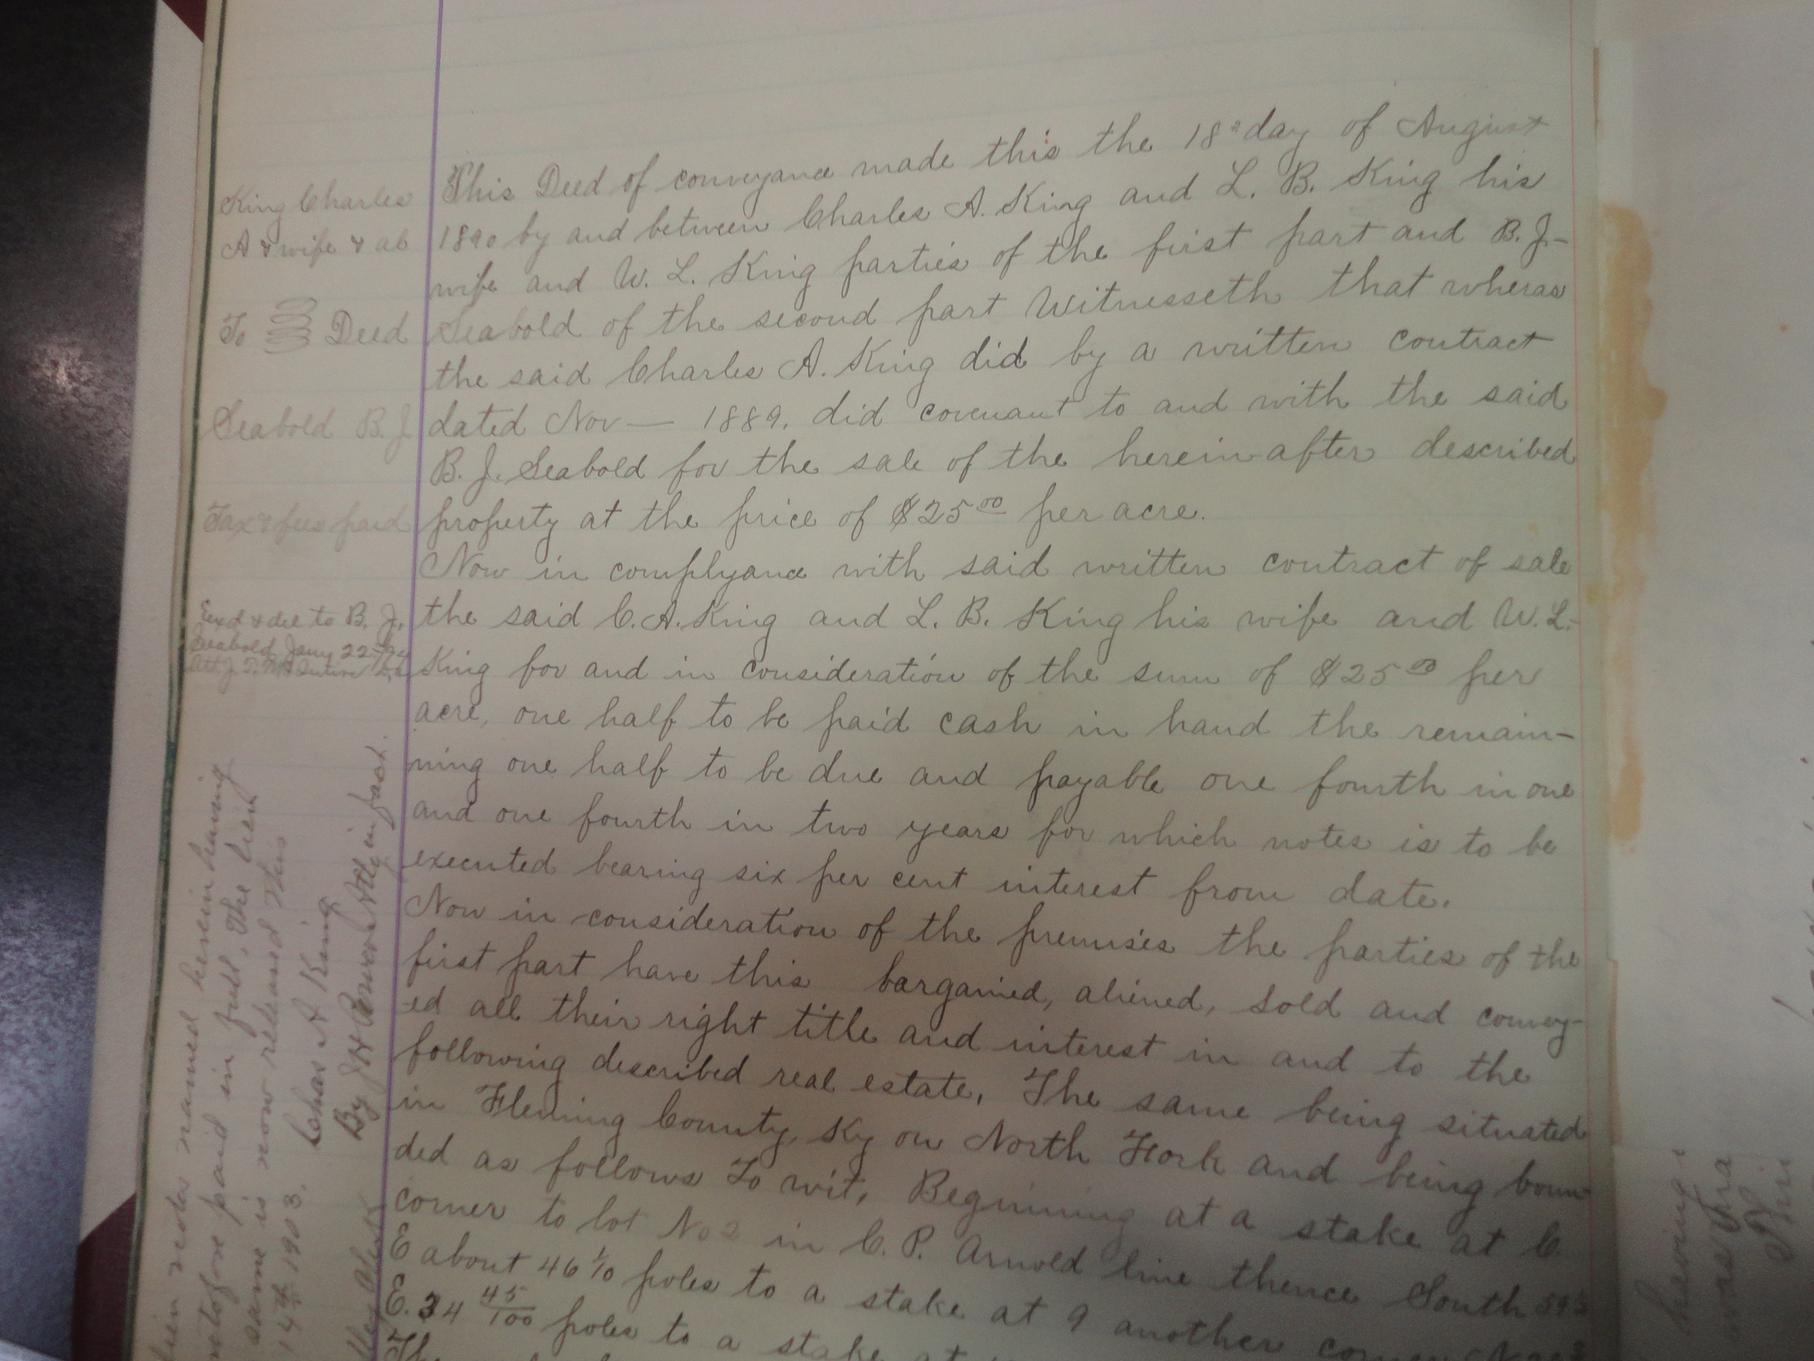 King Charles
A & wife & al
To Deed
Seabold B. J
Tax & fees paid
Exd & del to B. J.
Seabold Jany 22
This Deed of conveyance made this the 18 day of August
1890 by and between Charles A. King and L. B. King his
wife and W. L. King parties of the first part and B. J-
Seabold of the second part Witnesseth that wheras
the said Charles A. King did by a written contract
dated Nov — 1889. did covenant to and with the said
B. J. Seabold for the sale of the herein-after described
property at the price of $25.00 per acre.
Now in complyance with said written contract of sale
the said C. A. King and L. B. King his wife and W. L.
King for and in consideration of the sum of $25.00 per
acre, one half to be paid cash in hand the remain-
ning one half to be due and payable one fourth in one
and one fourth in two years for which notes is to be
executed bearing six per cent interest from date.
Now in consideration of the premises the parties of the
first part have this bargained, aliened, sold and convey-
ed all their right title and interest in and to the
following described real estate, The same being situated
in Fleming County, Ky on North Fork and being boun-
ded as follows To wit, Beginning at a stake at C
corner to lot No 2 in C. P. Arnold line thence South
E about 46 1/10 poles to a stake at 9 another
E. 34 45/100 poles to a stake at
lien notes named herein having
paid in full, The lien
same is now released this
14th 1903. Chas A King
By J H Atty in fact.